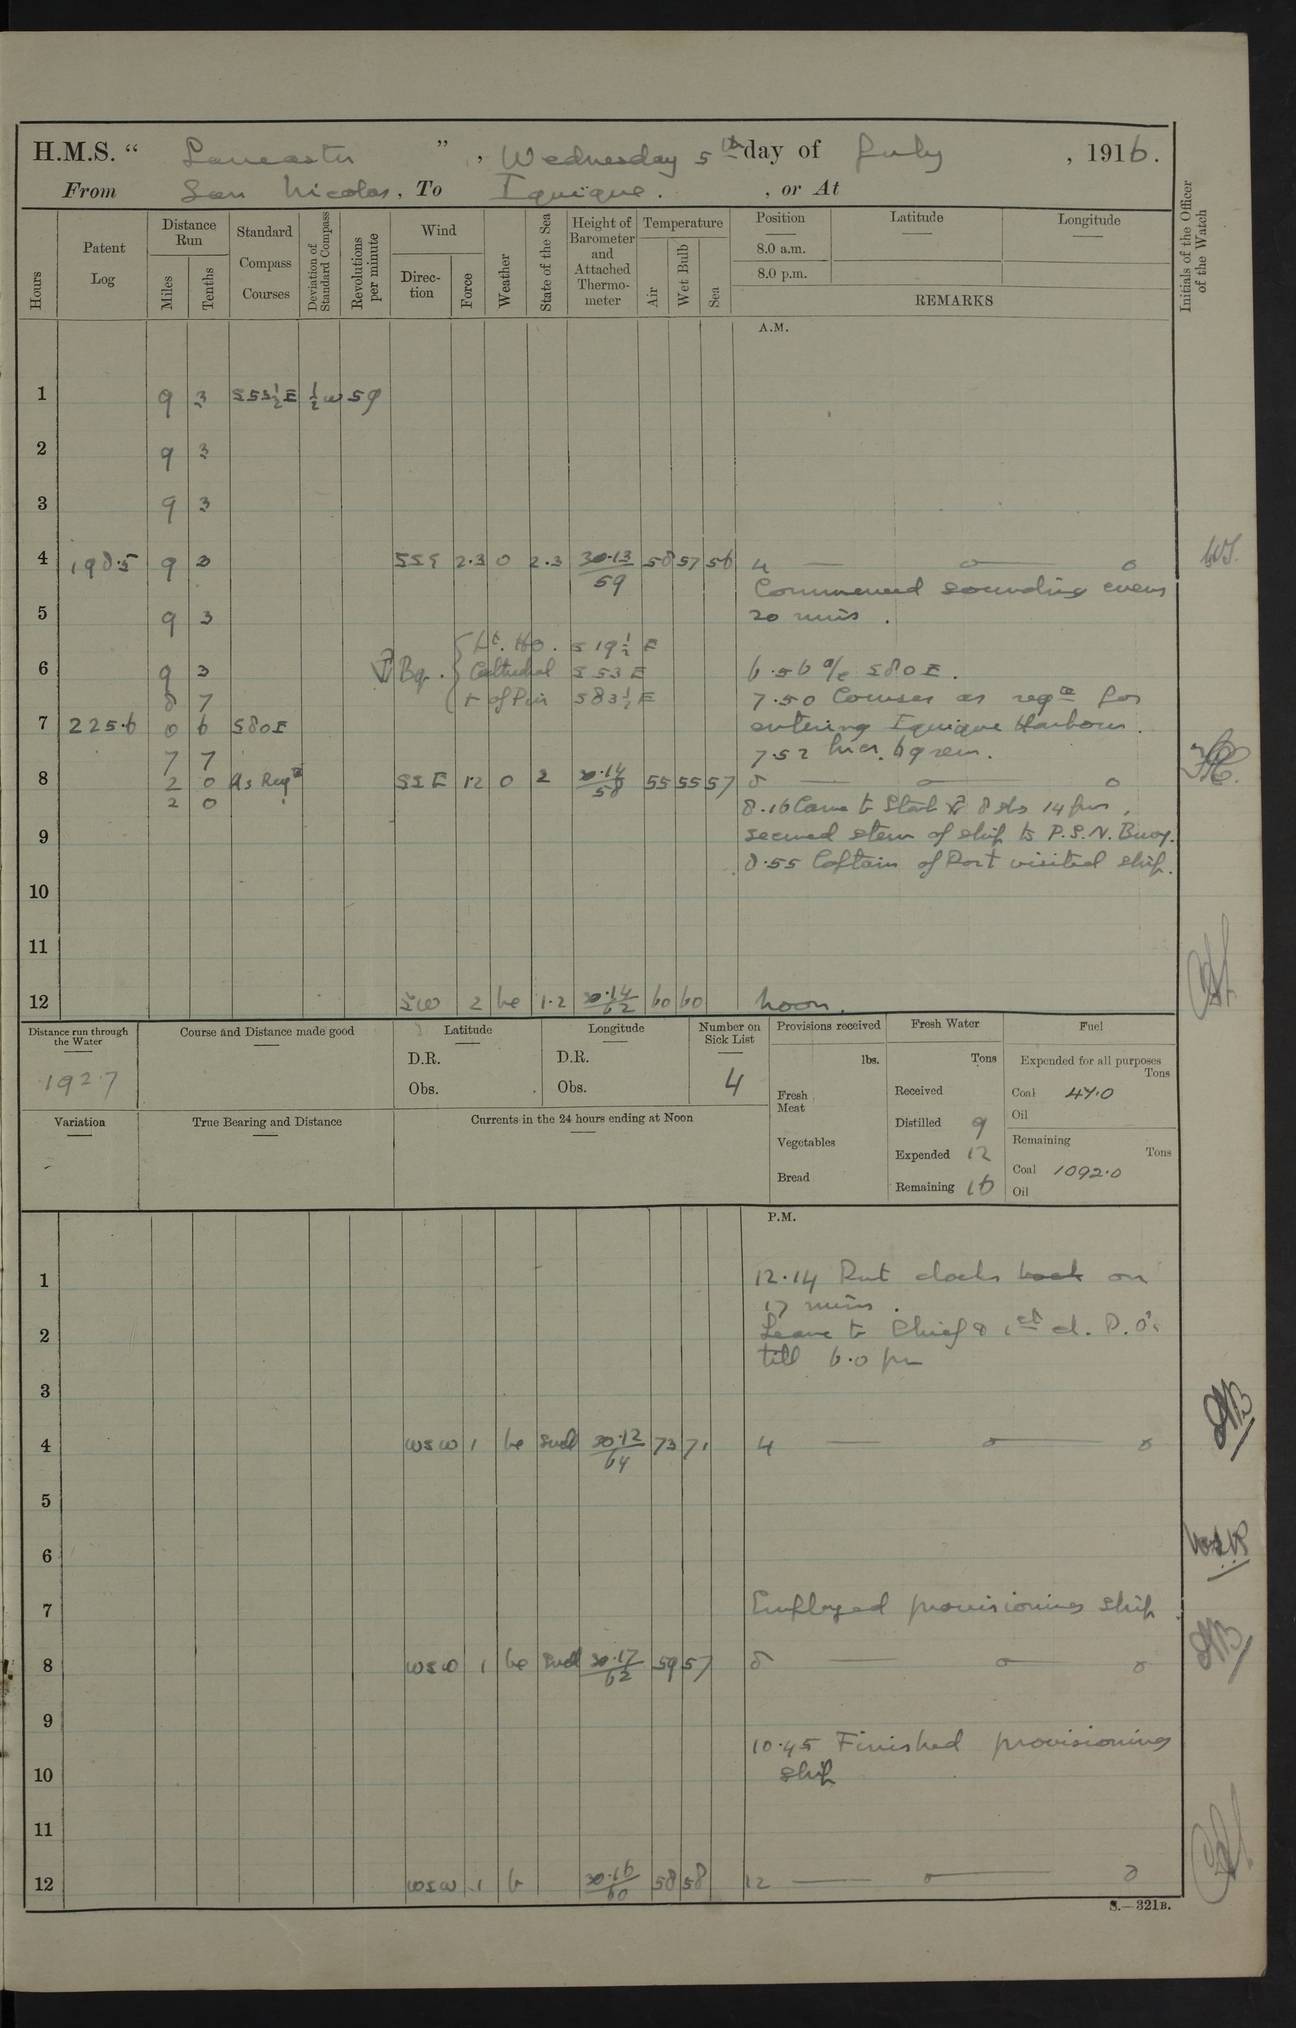 H.M.S. “ Lancaster ” , Wednesday 5th day of July , 1916.
From San Nicolas , To Iquique. , or At
Hours
Patent Log
Distance Run
Miles
Tenths
Standard Compass Courses
Deviation of Standard Compass
Revolutions per minute
Wind
Direc-tion
Force
Weather
State of the Sea
Height of Barometer and Attached Thermo-meter
Temperature
Air
Wet Bulb
Sea
Position
Latitude
Longitude
8.0 a.m.
8.0 p.m.
REMARKS
Initials of the Officer of the Watch
A.M.
1 9 3 S53½E ½w 59
2 9 3
3 9 3
4 198.5 9 3 SSE 2.3 o 2.3 30.13/59 58 57 56 4 — o — o
Commenced sounding every
5 9 3 20 mins.
Lt. Ho. S 19½ E
6 9 3 Bg. Cathedral S 53 E 6.56 a/c S80E.
8 7 r of Pier S83½E 7.50 Courses as reqd for
7 225.6 0 6 S80E entering Iquique Harbour.
7 7 7.52 hier. 69 rem.
8 2 0 As Reqd SSE 12 o 2 30.14/58 55 55 57 8 — o — o
2 0 8.16 Came to Starb 8 shs 14 fms,
9 secured stern of ship to P.S.N. Buoy.
8.55 Captain of Port visited ship.
10
11
12 SW 2 bc 1.2 30.14/62 60 60 noon.
Distance run through the Water
192.7
Course and Distance made good
Latitude
D.R.
Obs.
Longitude
D.R.
Obs.
Number on Sick List
4
Provisions received
lbs.
Fresh Meat
Vegetables
Bread
Fresh Water
Tons
Received
Distilled 9
Expended 12
Remaining 16
Fuel
Expended for all purposes
Tons
Coal 47.0
Oil
Remaining
Tons
Coal 1092.0
Oil
Variation
True Bearing and Distance
Currents in the 24 hours ending at Noon
P.M.
1 12.14 Put clocks back on
17 mins.
2 Leave to Chief & 1st cl. P.O's
till 6.0 pm
3
4 WSW 1 bc Swell 30.12/64 73 71 4 — o — o
5
6
7 Employed provisioning ship.
8 WSW 1 bc Swell 30.17/62 59 57 8 — o — o
9
10.45 Finished provisioning
10 ship
11
12 WSW 1 b 30.16/60 58 58 12 — o — o
S.—321B.